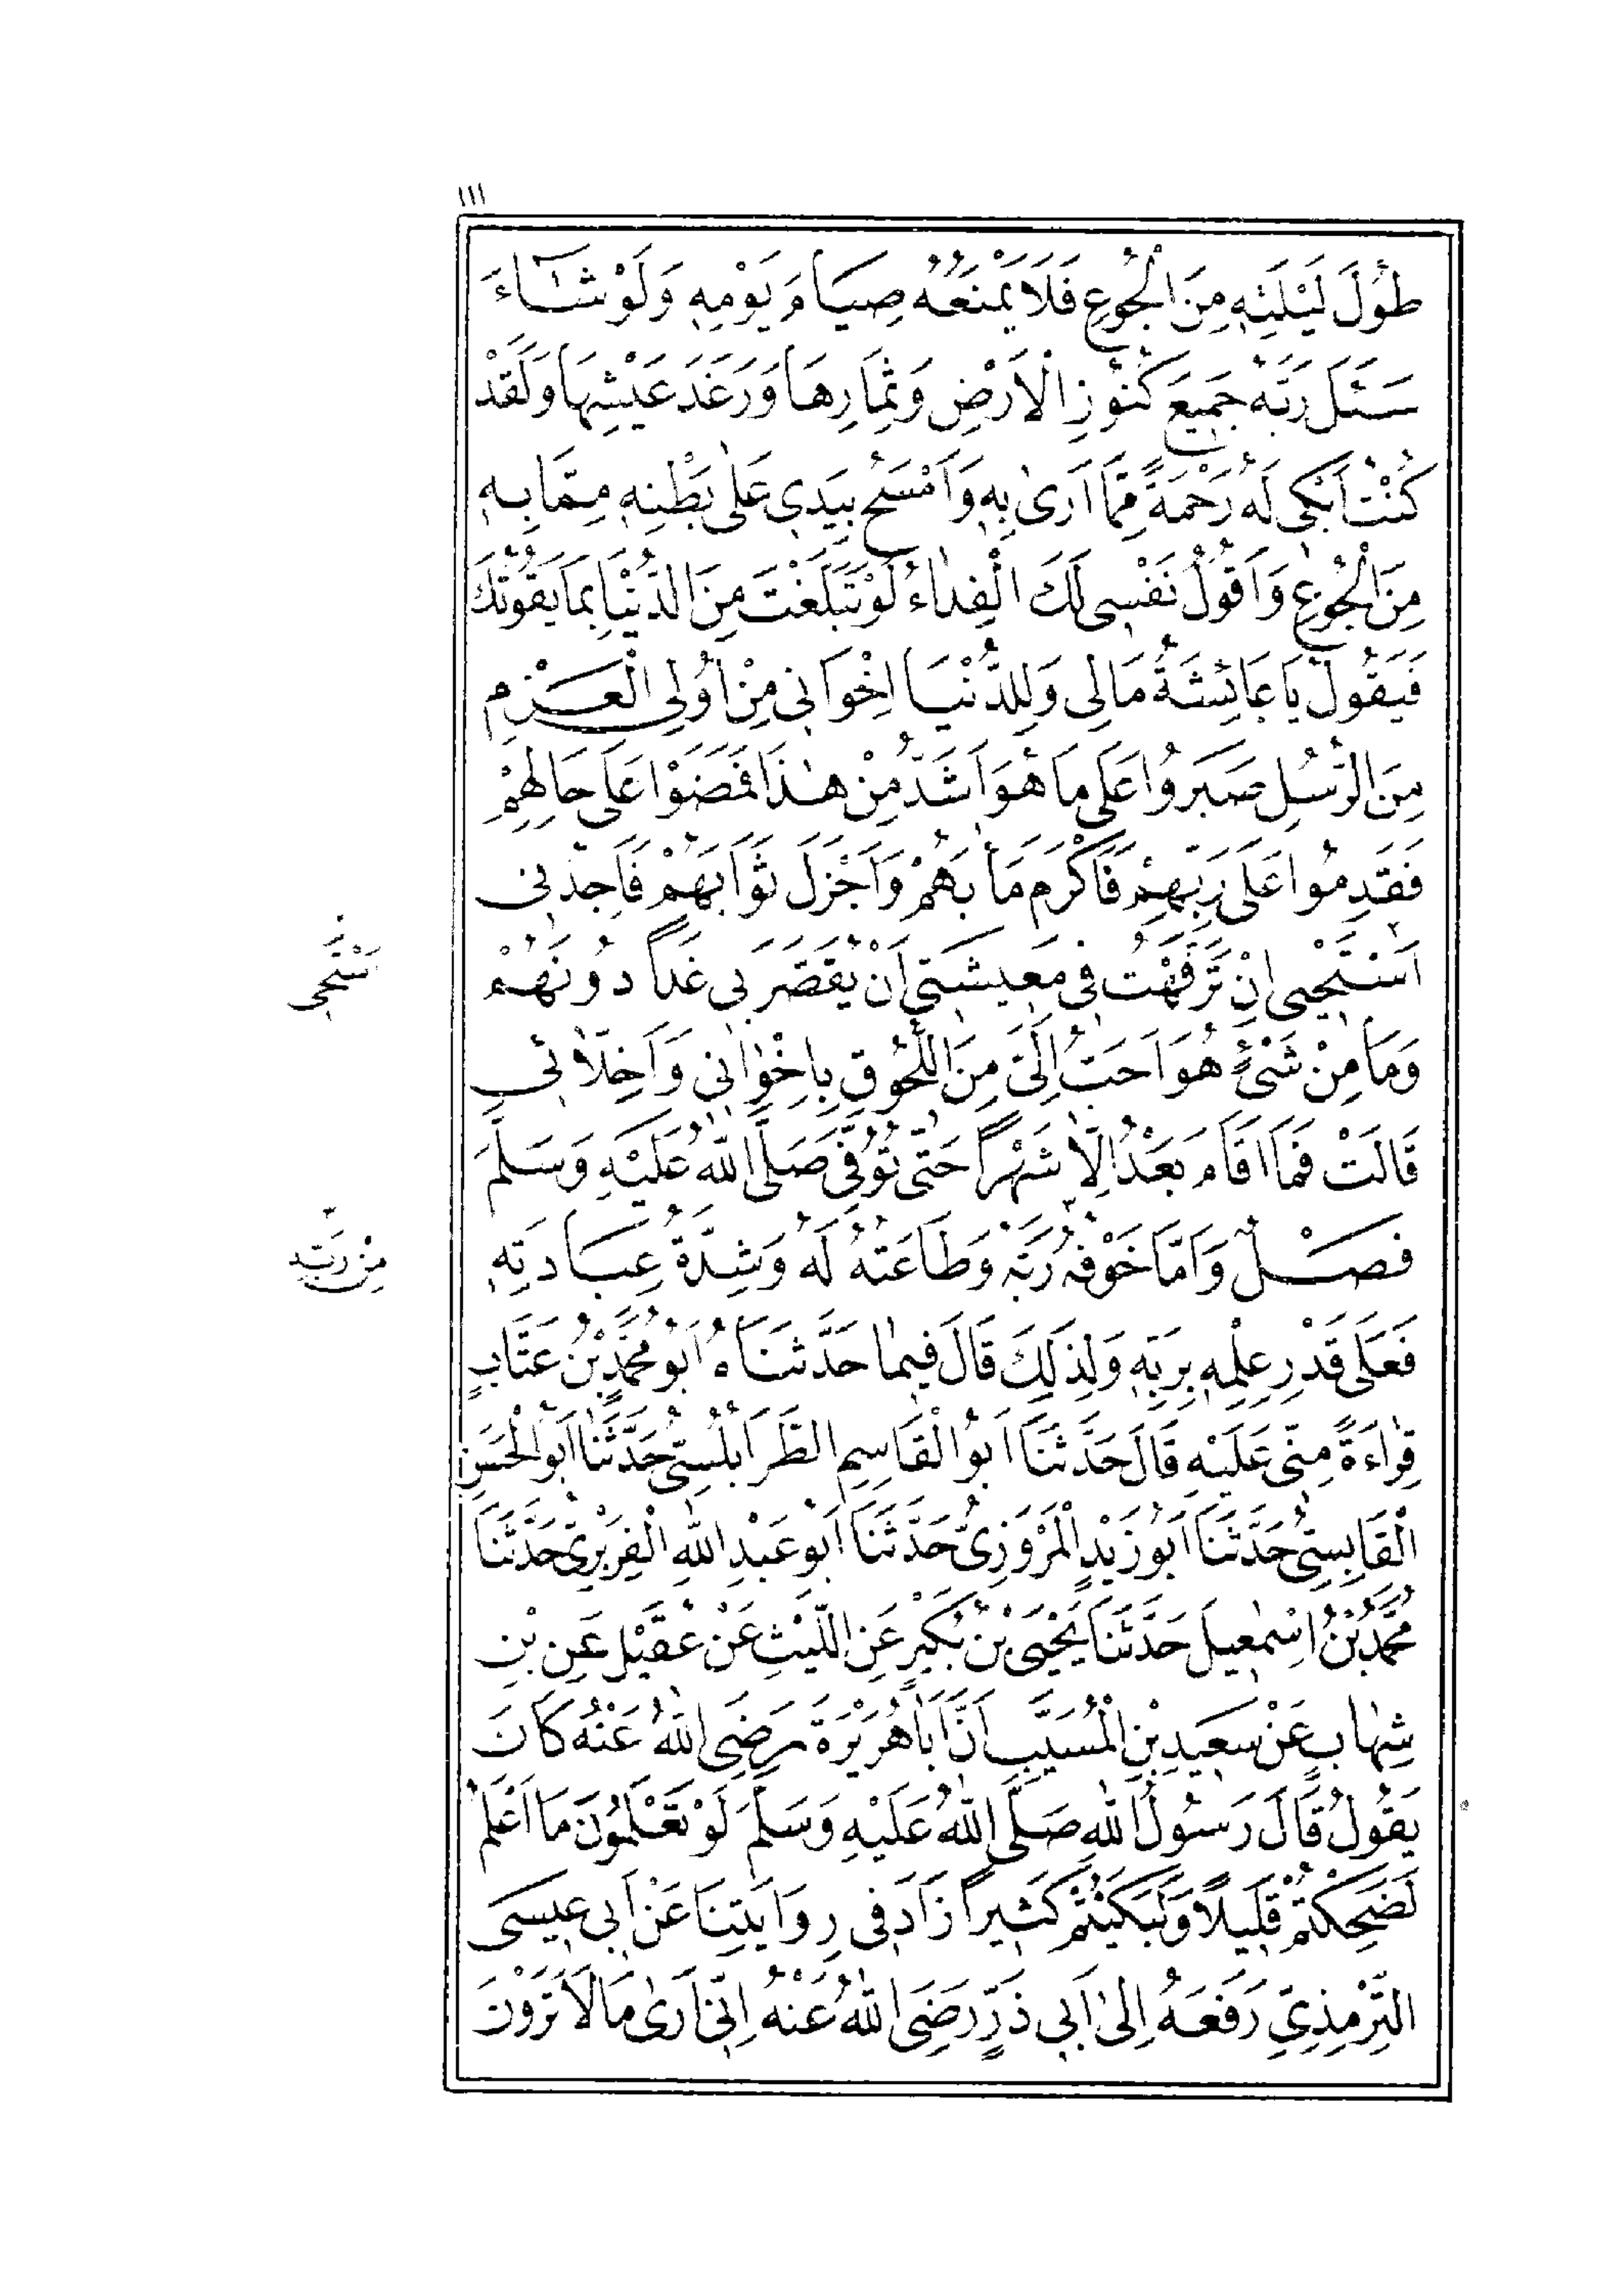 ١١١
طُولَ لَيْلَتِهِ مِنَ الْجُوعِ فَلَا يَمْنَعُهُ صِيَامَ يَوْمِهِ وَلَوْ شَاءَ
سَئَلَ رَبَّهُ جَمِيعَ كُنُوزِ الْاَرْضِ وَثِمَارِهَا وَرَغَدَ عَيْشِهَا وَلَقَدْ
كُنْتُ اَبْكِى لَهُ رَحْمَةً مِمَّا اَرَىٰ بِهِ وَاَمْسَحُ بِيَدِى عَلَىٰ بَطْنِهِ مِمَّا بِهِ
مِنَ الْجُوعِ وَاَقُولُ نَفْسِى لَكَ الْفِدَاءُ لَوْ تَبَلَّغْتَ مِنَ الدُّنْيَا بِمَا يَقُوتُكَ
فَيَقُولُ يَا عَائِشَةُ مَالِى وَلِلدُّنْيَا اِخْوَانِى مِنْ اُولِى الْعَزْمِ
مِنَ الرُّسُلِ صَبَرُوا عَلَى مَا هُوَ اَشَدُّ مِنْ هٰذَا فَمَضَوْا عَلَى حَالِهِمْ
فَقَدِمُوا عَلَى رَبِّهِمْ فَاَكْرَمَ مَاٰبَهُمْ وَاَجْزَلَ ثَوَابَهُمْ فَاَجِدُنِى
اَسْتَحْيِى اِنْ تَرَفَّهْتُ فِى مَعِيشَتِى اَنْ يُقَصَّرَ بِى غَدًا دُونَهُمْ
اَسْتَحِى
وَمَا مِنْ شَىْءٍ هُوَ اَحَبُّ اِلَىَّ مِنَ اللُّحُوقِ بِاِخْوَانِى وَاَخِلَّائِى
قَالَتْ فَمَا اَقَامَ بَعْدُ اِلَّا شَهْرًا حَتَّى تُوُفِّىَ صَلَّى اللّٰهُ عَلَيْهِ وَسَلَّمَ
فَصْلٌ وَاَمَّا خَوْفُهُ رَبَّهُ وَطَاعَتُهُ لَهُ وَشِدَّةُ عِبَادَتِهِ
مِنْ رَبِّهِ
فَعَلَى قَدْرِ عِلْمِهِ بِرَبِّهِ وَلِذَلِكَ قَالَ فِيمَا حَدَّثَنَاهُ اَبُو مُحَمَّدِ بْنُ عَتَّابٍ
قِرَاءَةً مِنِّى عَلَيْهِ قَالَ حَدَّثَنَا اَبُو الْقَاسِمِ الطَّرَابُلُسِىُّ حَدَّثَنَا اَبُو الْحَسَنِ
الْقَابِسِىُّ حَدَّثَنَا اَبُو زَيْدٍ الْمَرْوَزِىُّ حَدَّثَنَا اَبُو عَبْدِ اللّٰهِ الْفِرَبْرِىُّ حَدَّثَنَا
مُحَمَّدُ بْنُ اِسْمٰعِيلَ حَدَّثَنَا يَحْيَى بْنُ بُكَيْرٍ عَنِ اللَّيْثِ عَنْ عُقَيْلٍ عَنِ بْنِ
شِهَابٍ عَنْ سَعِيدِ بْنِ الْمُسَيَّبِ اَنَّ اَبَا هُرَيْرَةَ رَضِىَ اللّٰهُ عَنْهُ كَانَ
يَقُولُ قَالَ رَسُولُ اللّٰهِ صَلَّى اللّٰهُ عَلَيْهِ وَسَلَّمَ لَوْ تَعْلَمُونَ مَا اَعْلَمُ
لَضَحِكْتُمْ قَلِيلًا وَلَبَكَيْتُمْ كَثِيرًا زَادَ فِى رِوَايَتِنَا عَنْ اَبِى عِيسَى
التِّرْمِذِىِّ رَفَعَهُ اِلَىٰ اَبِى ذَرٍّ رَضِىَ اللّٰهُ عَنْهُ اِنِّى اَرَىٰ مَا لَا تَرَوْنَ